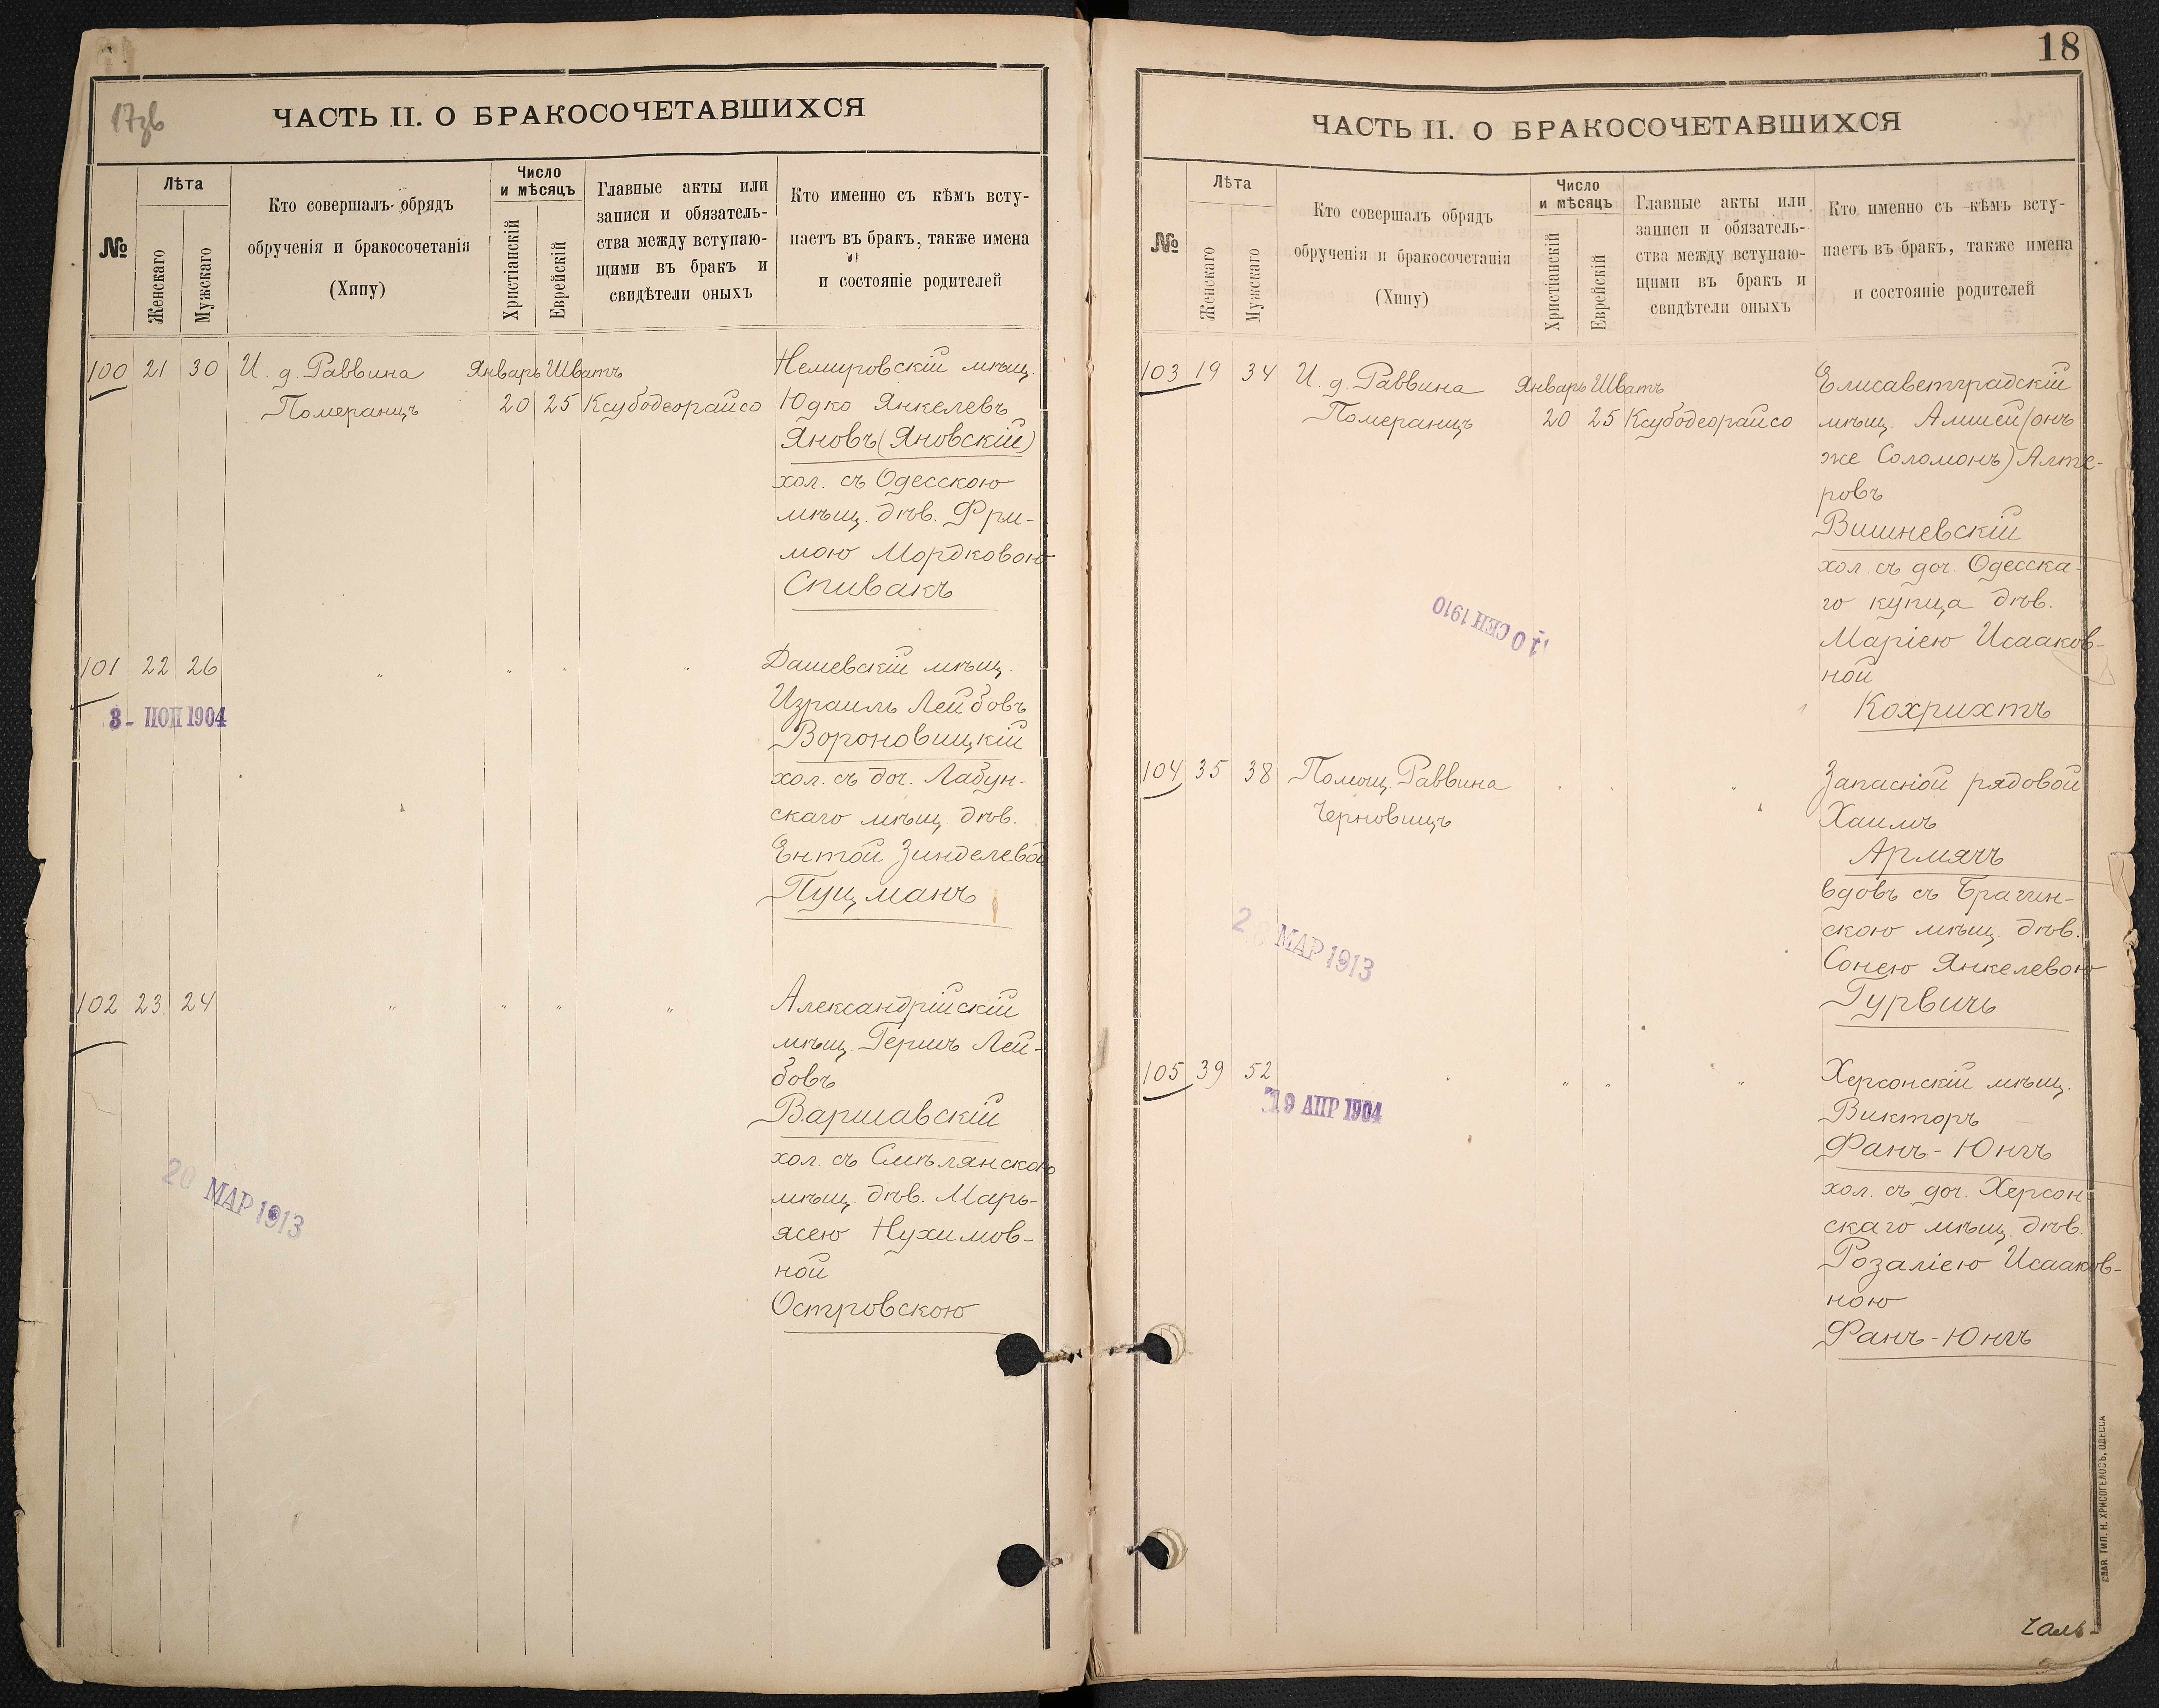 17зв
ЧАСТЬ II. О БРАКОСОЧЕТАВШИХСЯ
№
Лѣта
Женскаго
Мужскаго
Кто совершалъ обрядъ
обрученія и бракосочетанія
(Хипу)
Число
и мѣсяцъ
Христіанскій
Еврейскій
Главные акты или
записи и обязатель-
ства между вступаю-
щими въ бракъ и
свидѣтели оныхъ
Кто именно съ кѣмъ всту-
паетъ въ бракъ, также имена
и состояніе родителей
100 21 30 И. д. Раввина Январь Шватъ Немировскій мѣщ.
Померанцъ 20 25 Ксубодеорайсо Юдко Янкелевъ
Яновъ (Яновскій)
хол. съ Одесскою
мѣщ. дѣв. Фри-
мою Мордковою
Спивакъ
101 22 26 " " " " Дашевскій мѣщ.
Израиль Лейбовъ
3 - ПОП 1904
Вороновицкій
хол. съ доч. Лабун-
скаго мѣщ. дѣв.
Ентой Зинделевой
Пуцманъ
102 23 24 " " " " Александрійскій
мѣщ. Гершъ Лей-
бовъ
Варшавскій
хол. съ Смѣлянскою
20 МАР 1913
мѣщ. дѣв. Марь-
ясею Нухимов-
ной
Островскою
18
ЧАСТЬ II. О БРАКОСОЧЕТАВШИХСЯ
№
Лѣта
Женскаго
Мужскаго
Кто совершалъ обрядъ
обрученія и бракосочетанія
(Хипу)
Число
и мѣсяцъ
Христіанскій
Еврейскій
Главные акты или
записи и обязатель-
ства между вступаю-
щими въ бракъ и
свидѣтели оныхъ
Кто именно съ кѣмъ всту-
паетъ въ бракъ, также имена
и состояніе родителей
103 19 34 И. д. Раввина Январь Шватъ Елисаветградскій
Померанцъ 20 25 Ксубодеорайсо мѣщ. Амшей (онъ
же Соломонъ) Алте-
ровъ
Вишневскій
хол. съ доч. Одесска-
го купца дѣв.
10 СЕН 1910
Маріею Исааков-
ной
Кохрихтъ
104 35 38 Помощ. Раввина " " " Запасной рядовой
Черновицъ Хаимъ
Армячъ
вдовъ съ Брагин-
скою мѣщ. дѣв.
МАР 1913
Сонею Янкелевою
Гурвичъ
105 39 52 " " " " Херсонскій мѣщ.
19 АПР 1904
Викторъ
Фанъ-Юнгъ
хол. съ доч. Херсон-
скаго мѣщ. дѣв.
Розаліею Исааков-
ною
Фанъ-Юнгъ
СЛАВ. ТИП. Н. ХРИСОГЕЛОСЪ, ОДЕССА